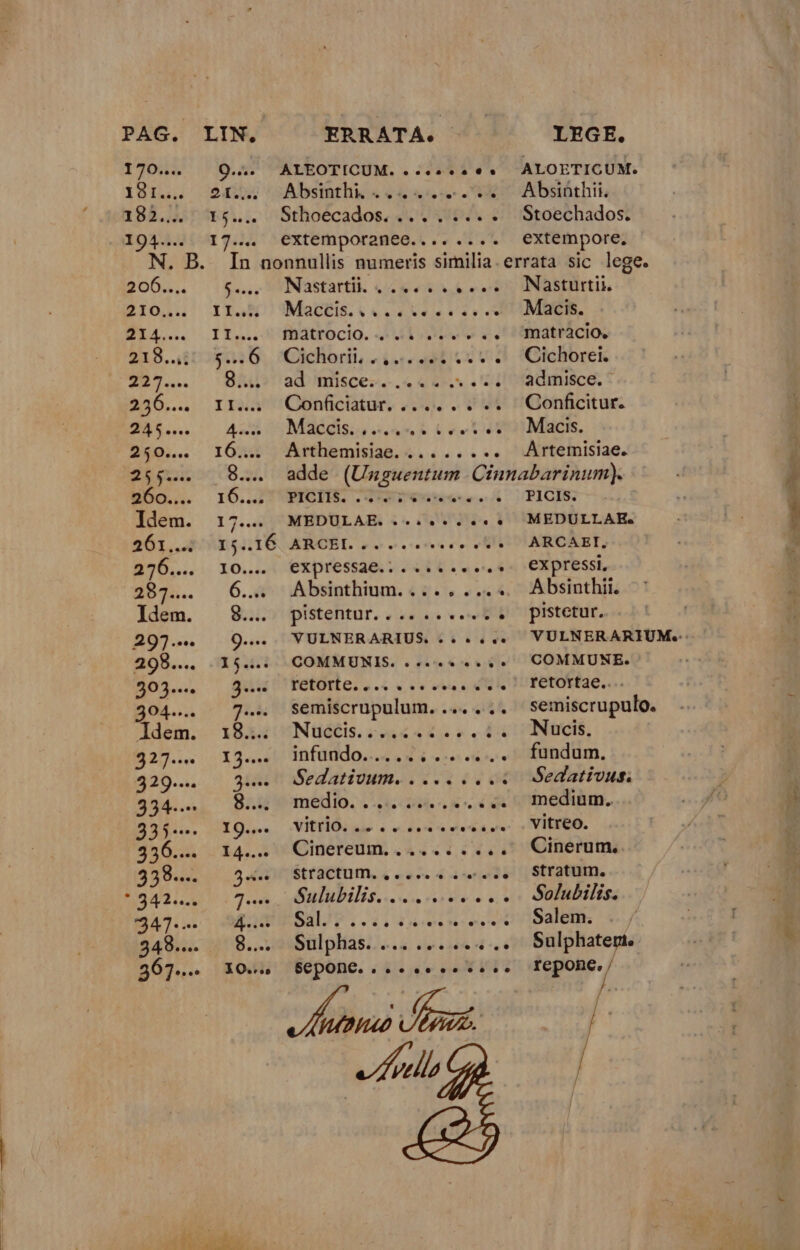 PAG. LIN. ERRATA. LEGE.
170.... 9.... ALEOTICUM. ........ ALOETICUM.
181.... 21.... Absinthi. .......... Absinthii.
182.... 15.... Sthoecados. ........ Stoechados.
194.... 17.... extemporanee. ....... extempore.
N. B. In nonnullis numeris similia errata sic lege.
206.... 5.... Nastartii. .......... Nasturtii.
210.... 11.... Maccis. .......... Macis.
214.... 11.... matrocio. .......... matracio.
218.... 5...6 Cichorii. .......... Cichorei.
227.... 8.... ad misce. .......... admisce.
236.... 11.... Conficiatur. ........ Conficitur.
245.... 4.... Maccis. .......... Macis.
250.... 16.... Arthemisiae. ........ Artemisiae.
255.... 8.... adde (Unguentum Cinnabarinum).
260.... 16.... PICIIS. .......... PICIS.
Idem. 17.... MEDULAE. .......... MEDULLAE.
261.... 15..16 ARCEI. .......... ARCAEI.
276.... 10.... expressae. .......... expressi.
287.... 6.... Absinthium. ........ Absinthii.
Idem. 8.... pistentur. .......... pistetur.
297.... 9.... VULNERARIUS. ...... VULNERARIUM.
298.... 15.... COMMUNIS. ........ COMMUNE.
303.... 3.... retorte. .......... retortae.
304.... 7.... semiscrupulum. ...... semiscrupulo.
Idem. 18.... Nuccis. .......... Nucis.
327.... 13.... infundo. .......... fundum.
329.... 3.... Sedativum. ........ Sedativus.
334.... 8.... medio. .......... medium.
335.... 19.... vitrio. .......... vitreo.
336.... 14.... Cinereum. ......... Cinerum.
338.... 3.... stractum. .......... stratum.
342.... 7.... Sulubilis. .......... Solubilis.
347.... 4.... Sal. .......... Salem.
348.... 8.... Sulphas. .......... Sulphatem.
367.... 10.... sepone. .......... repone.
Antonio